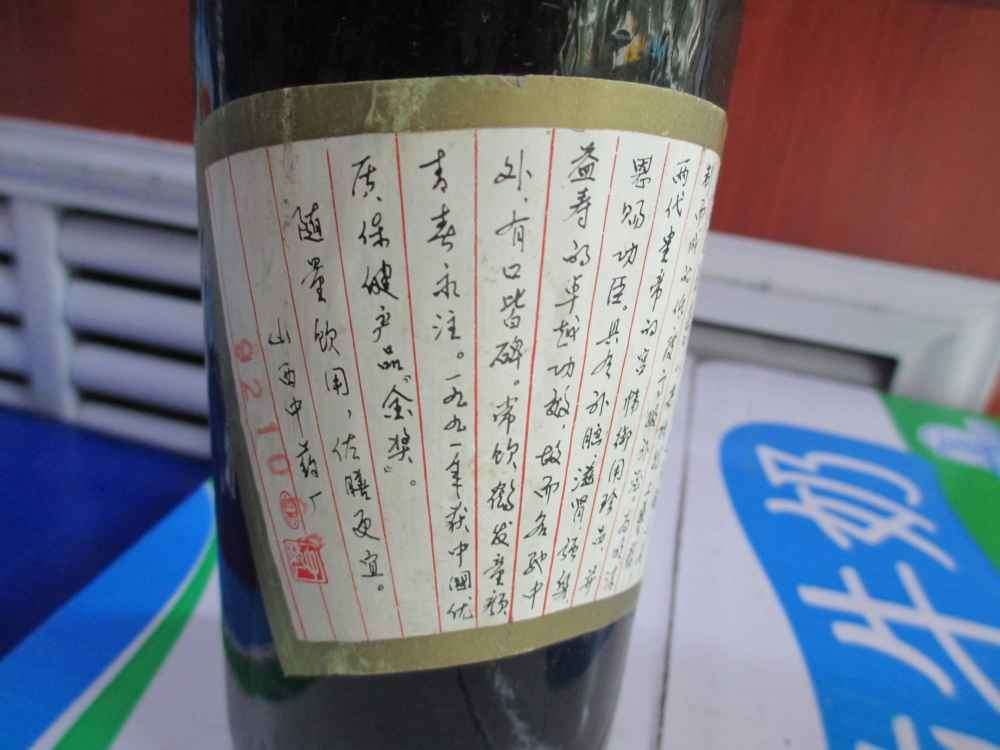 两代皇帝的宫
恩赐功臣。具有补脑、滋肾、强
益寿的卓越功效,故而名驰中
外,有口皆碑。常饮鹤发童颜
青春永注。一九九一年获中国优
质、保健产品“金奖”。
随量饮用,佐膳更宜。
山西中药厂
8210
牛奶